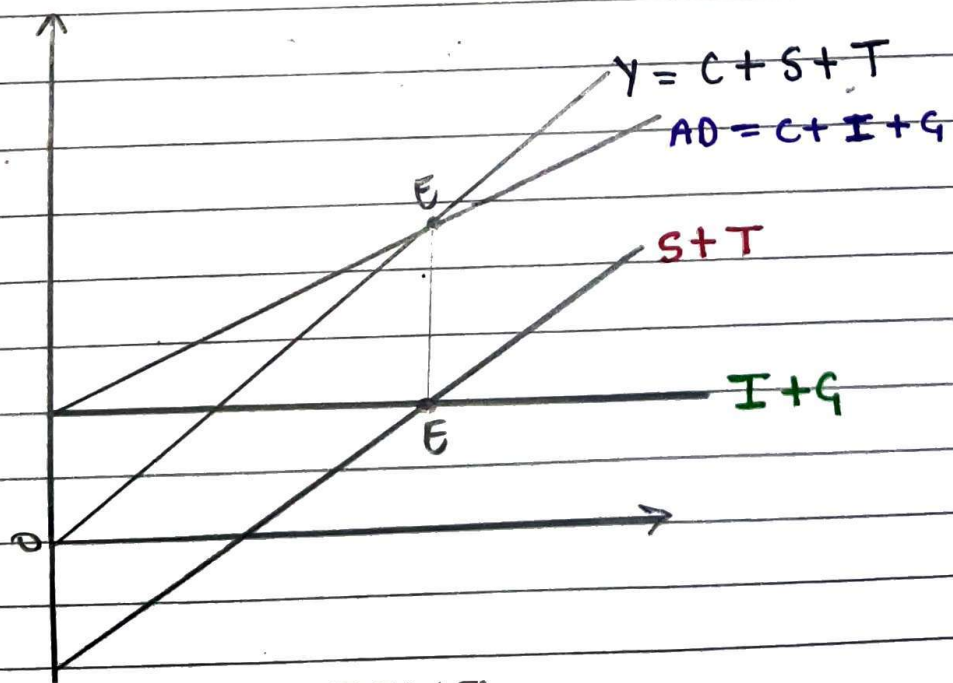 Y = C + S + T
AD = C + I + G
E
S + T
I + G
E
O